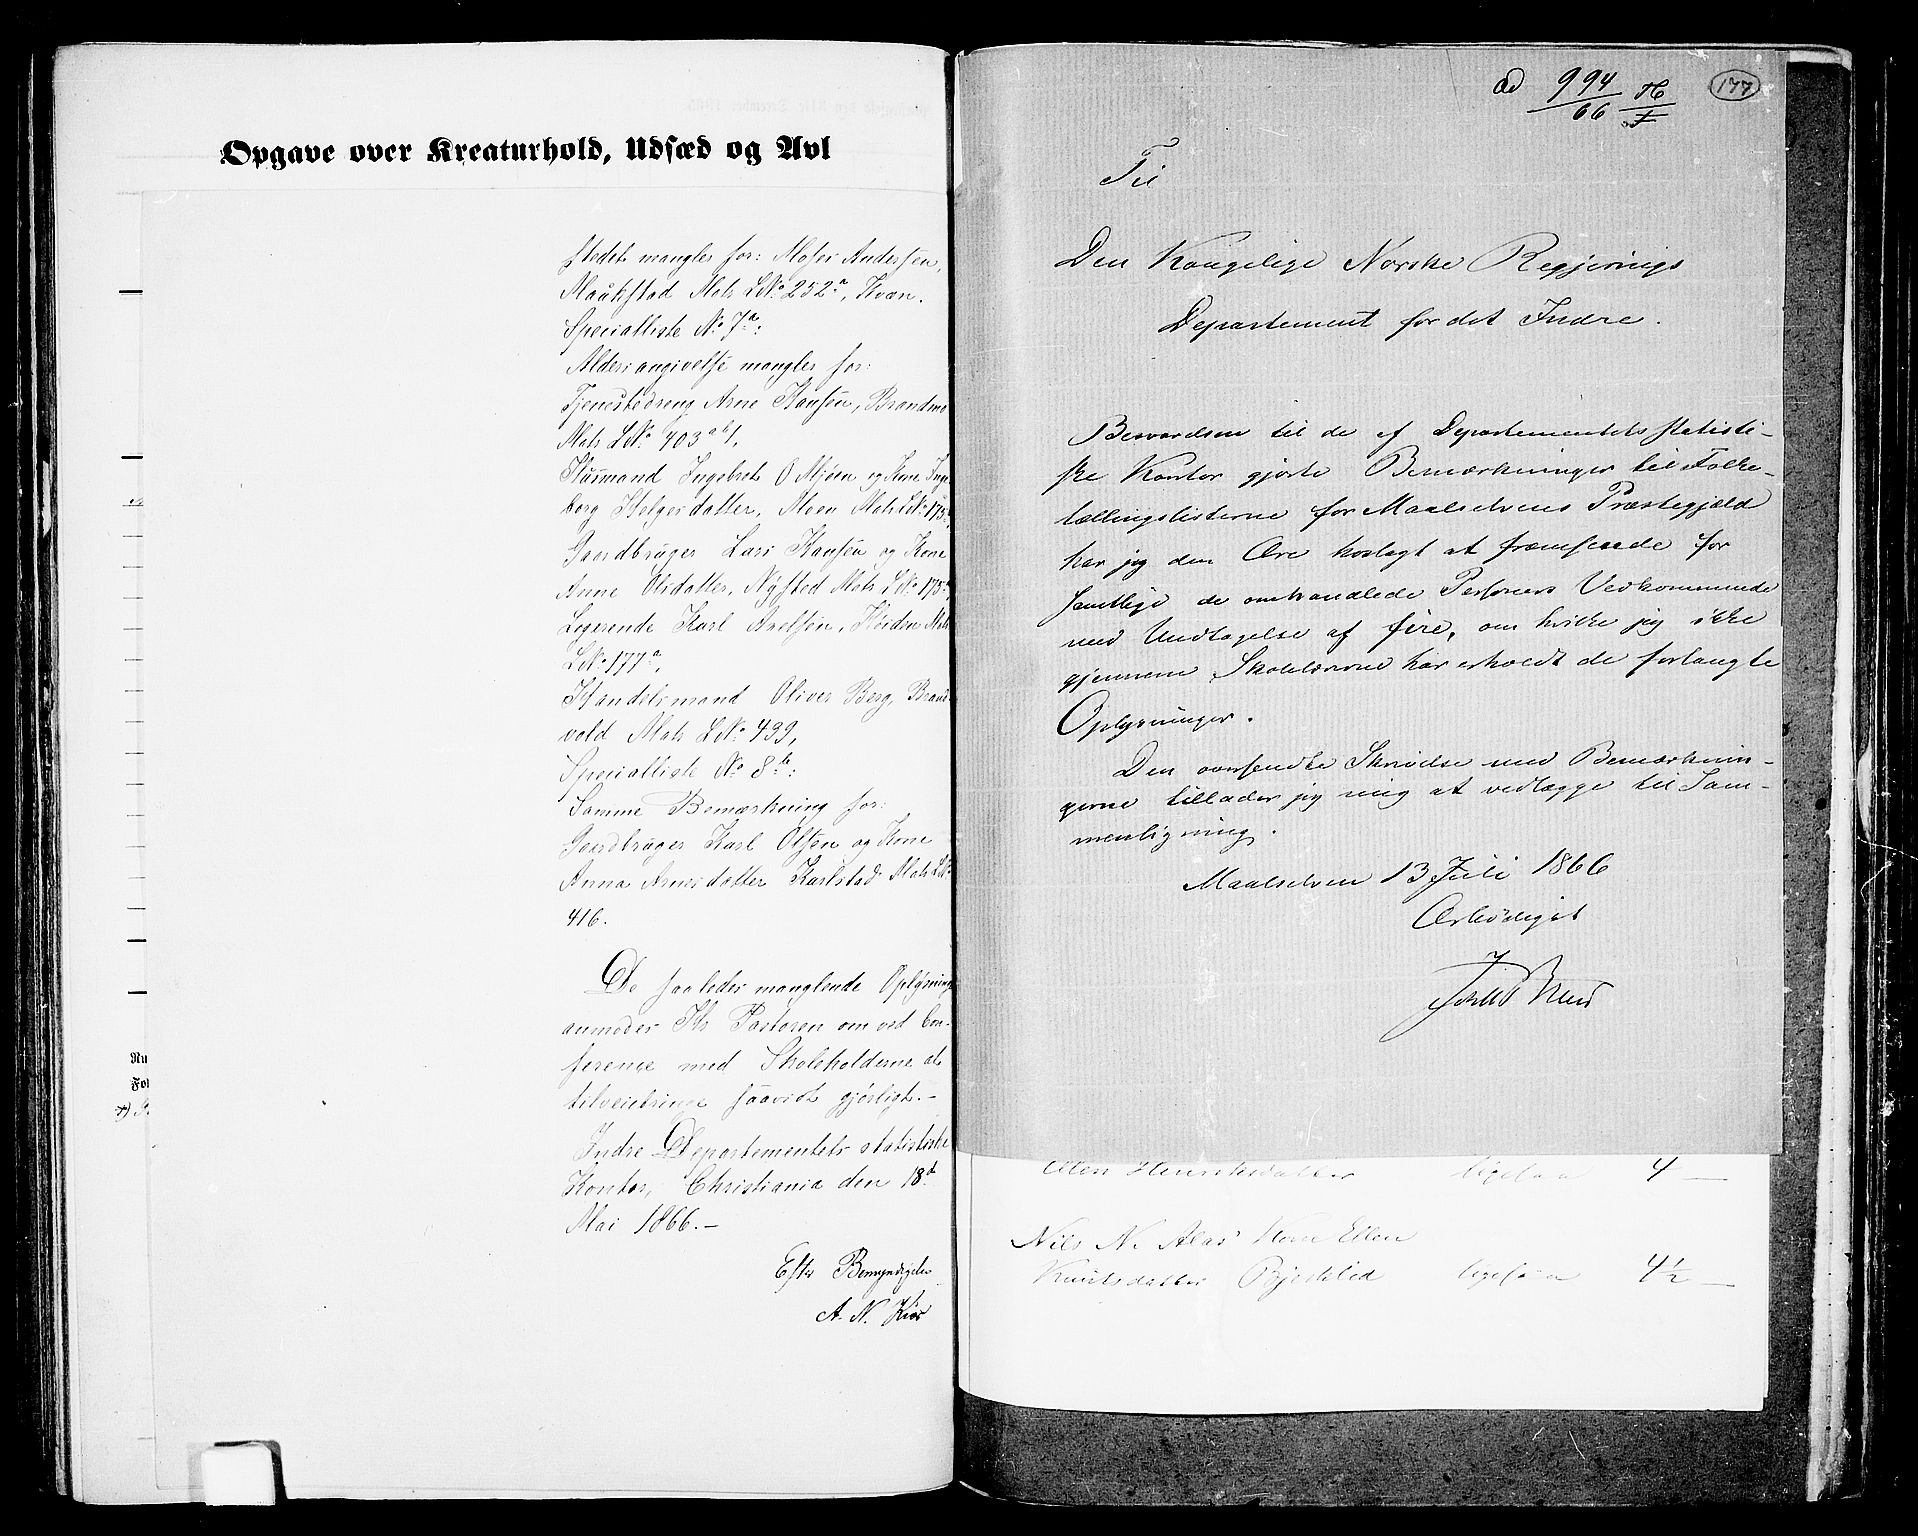 Opgave over Kreaturhold, Udsæd og Avl
stedet mangler for: Moses Andersen,
Maukstad Matr LNo 252a, Kvæn.
Specialliste No 7de:
Aldersangivelse mangler for:
Tjenestedreng Arne Hansen, Brandmo
Matr LNo 403ab1,
Husmand Ingebret O Mjøen og Kone Inge-
borg Helgesdatter, Moen Matr LNo 175
Gaardbruger Lars Hansen og Kone
Anne Olsdatter, Nysted Matr LNo 175
Logerende Karl Axelsen, Heiden Matr
LNo 177a,
Handelsmand Oliver Berg, Brand-
vold Matr LNo 499,
Specialliste No 8de:
Samme Bemærkning for:
Gaardbruger Karl Olsen og Kone
Anna Arnesdatter Karlstad Matr LNo
416.
De saaledes manglende Oplysninger
anmodes Hr Pastoren om ved Con-
ference med Skoleholderne at
tilveiebringe saavidt gjørligt.-
Indre Departementets statistiske
Kontor, Christiania den 18de
Mai 1866.-
Efter Bemyndigelse
A. N. Kiær
Ru
Fol
ad 994/66 H/F
177
Til
Den Kongelige Norske Regjerings
Departement for det Indre.
Besvarelsen til de af Departementets statisti-
ske Kontor gjorte Bemærkninger til Folke-
tællingslisterne for Maalselvens Præstegjæld
har jeg den Ære hoslagt at fremsende for
samtlige de omhandlede Personers Vedkommende
med Undtagelse af fire, om hvilke jeg ikke
gjennem Skolelærerne har erholdt de forlangte
Oplysninger.
Den oversendte Skrivelse med Bemærknin-
gerne tillader jeg mig at vedlægge til Sam-
menligning.
Maalselven 13 Juli 1866
Ærbødigst
Ellen Henriksdatter ligesaa 4 —
Nils N. Aless Kone Ellen
Knutsdatter ligesaa 4½ —